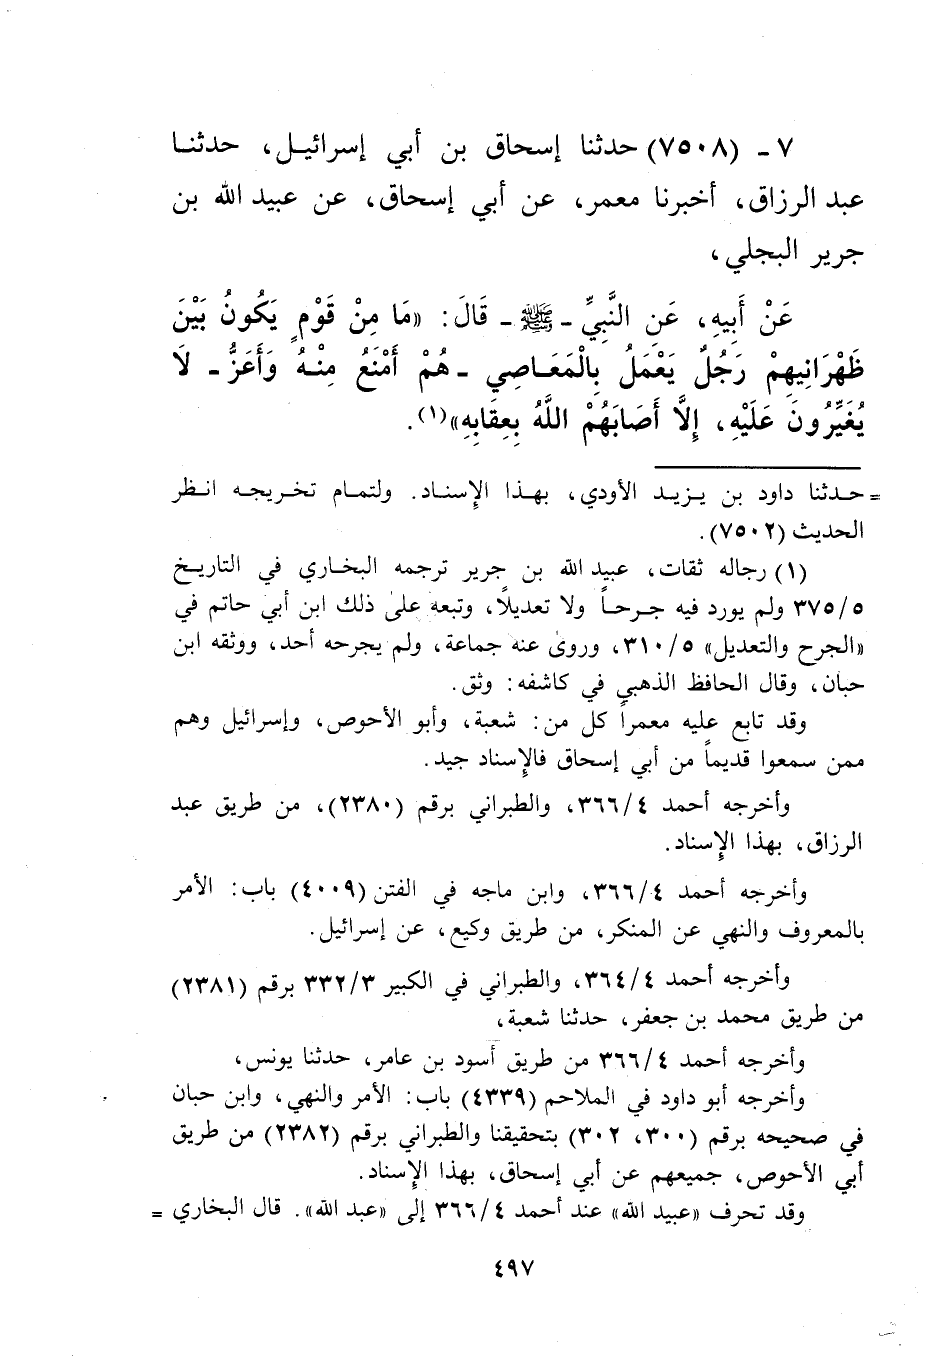 ٧ ـ (٧٥٠٨) حدثنا إسحاق بن أبي إسرائيل، حدثنا
عبد الرزاق، أخبرنا معمر، عن أبي إسحاق، عن عبيد الله بن
جرير البجلي،
عَنْ أَبِيهِ، عَنِ النَّبِيِّ ـ ﷺ ـ قَالَ: «مَا مِنْ قَوْمٍ يَكُونُ بَيْنَ
ظَهْرَانِيهِمْ رَجُلٌ يَعْمَلُ بِالْمَعَاصِي ـ هُمْ أَمْنَعُ مِنْهُ وَأَعَزُّ ـ لاَ
يُغَيِّرُونَ عَلَيْهِ، إِلَّا أَصَابَهُمْ اللَّهُ بِعِقَابِهِ»(١).
= حدثنا داود بن يزيد الأودي، بهذا الإسناد. ولتمام تخريجه انظر
الحديث (٧٥٠٢).
(١) رجاله ثقات، عبيد الله بن جرير ترجمه البخاري في التاريخ
٣٧٥/٥ ولم يورد فيه جرحاً ولا تعديلاً، وتبعه على ذلك ابن أبي حاتم في
«الجرح والتعديل» ٣١٠/٥، وروى عنه جماعة، ولم يجرحه أحد، ووثقه ابن
حبان، وقال الحافظ الذهبي في كاشفه: وثق.
وقد تابع عليه معمراً كل من: شعبة، وأبو الأحوص، وإسرائيل وهم
ممن سمعوا قديماً من أبي إسحاق فالإسناد جيد.
وأخرجه أحمد ٣٦٦/٤، والطبراني برقم (٢٣٨٠)، من طريق عبد
الرزاق، بهذا الإسناد.
وأخرجه أحمد ٣٦٦/٤، وابن ماجه في الفتن (٤٠٠٩) باب: الأمر
بالمعروف والنهي عن المنكر، من طريق وكيع، عن إسرائيل.
وأخرجه أحمد ٣٦٤/٤، والطبراني في الكبير ٣٣٢/٣ برقم (٢٣٨١)
من طريق محمد بن جعفر، حدثنا شعبة،
وأخرجه أحمد ٣٦٦/٤ من طريق أسود بن عامر، حدثنا يونس،
وأخرجه أبو داود في الملاحم (٤٣٣٩) باب: الأمر والنهي، وابن حبان
في صحيحه برقم (٣٠٠، ٣٠٢) بتحقيقنا والطبراني برقم (٢٣٨٢) من طريق
أبي الأحوص، جميعهم عن أبي إسحاق، بهذا الإسناد.
وقد تحرف «عبيد الله» عند أحمد ٣٦٦/٤ إلى «عبد الله». قال البخاري =
٤٩٧